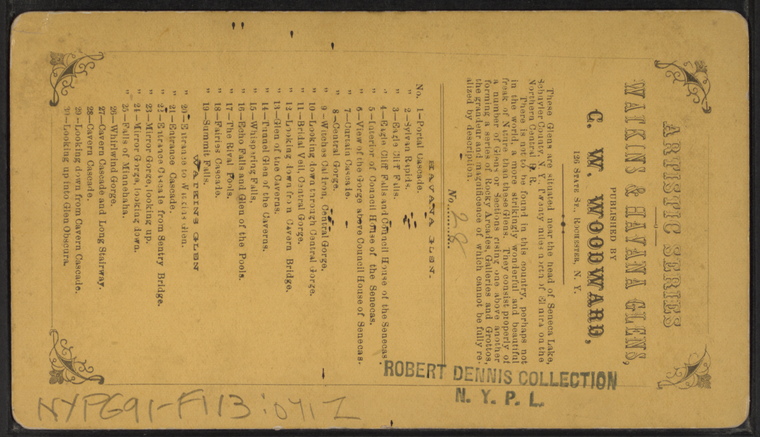 ARTISTIC SERIES
WATKINS & HAVANA GLENS,
PUBLISHED BY
C. W. WOODWARD,
126 STATE ST. ROCHESTER, N. Y.
These Glens are situated near the head of Seneca Lake,
Schuyler County, N. Y., Twenty miles north of Elmira on the
Northern Central R. R.
There is not to be found in this country, perhaps not
in the world, a more strikingly wonderful and beautiful
freak of Nature than these Glens. They consist properly of
a number of Glens or Sections rising one above another
forming a series of Rocky Arcades, Galleries and Grottos,
the grandeur and magnificence of which cannot be fully re-
alized by description.
No.
HAVANA GLEN.
No. 1–Portal Cascade.
" 2–Sylvan Rapids.
" 3–Eagle Cliff Falls.
" 4–Eagle Cliff Falls and Council House of the Senecas
" 5–Interior of Council House of the Senecas.
" 6–View of the Gorge above Council House of Senecas.
" 7–Curtain Cascade.
" 8–Central Gorge.
" 9–Witches Caldron, Central Gorge.
" 10–Looking down through Central Gorge.
" 11–Bridal Veil, Central Gorge.
" 12–Looking down from Cavern Bridge.
" 13–Glen of the Caverns.
" 14–Tunnel Glen of the Caverns.
" 15–Whispering Falls.
" 16–Echo Falls and Glen of the Pools.
" 17–The Rival Pools.
" 18–Fairies Cascade.
" 19–Summit Falls.
WATKINS GLEN
" 20–Entrance to Watkins Glen.
" 21–Entrance Cascade.
" 22–Entrance Cascade from Sentry Bridge.
" 23–Mirror Gorge, looking up.
" 24–Mirror Gorge, looking down.
" 25–Falls of Minnehaha.
" 26–Whirlwind Gorge.
" 27–Cavern Cascade and Long Stairway.
" 28–Cavern Cascade.
" 29–Looking down from Cavern Cascade.
" 30–Looking up into Glen Obscura.
ROBERT DENNIS COLLECTION
N. Y. P. L.
NYPG91-F113:041Z